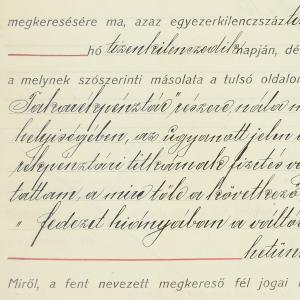 megkeresésére ma, azaz egyezerkilenczszáz
hó tizenkilenczedik napján, dé
a melynek szószerinti másolata a tulsó oldalon
Takarékpénztár" részére, nála m
helyiségében, az ugyanott jelen
rékpénztári titkárnak fizetés v
tattam, a mire től a következő
" fedezet hiányában a váltó
hetün
Miről, a fent nevezett megkereső fél jogai